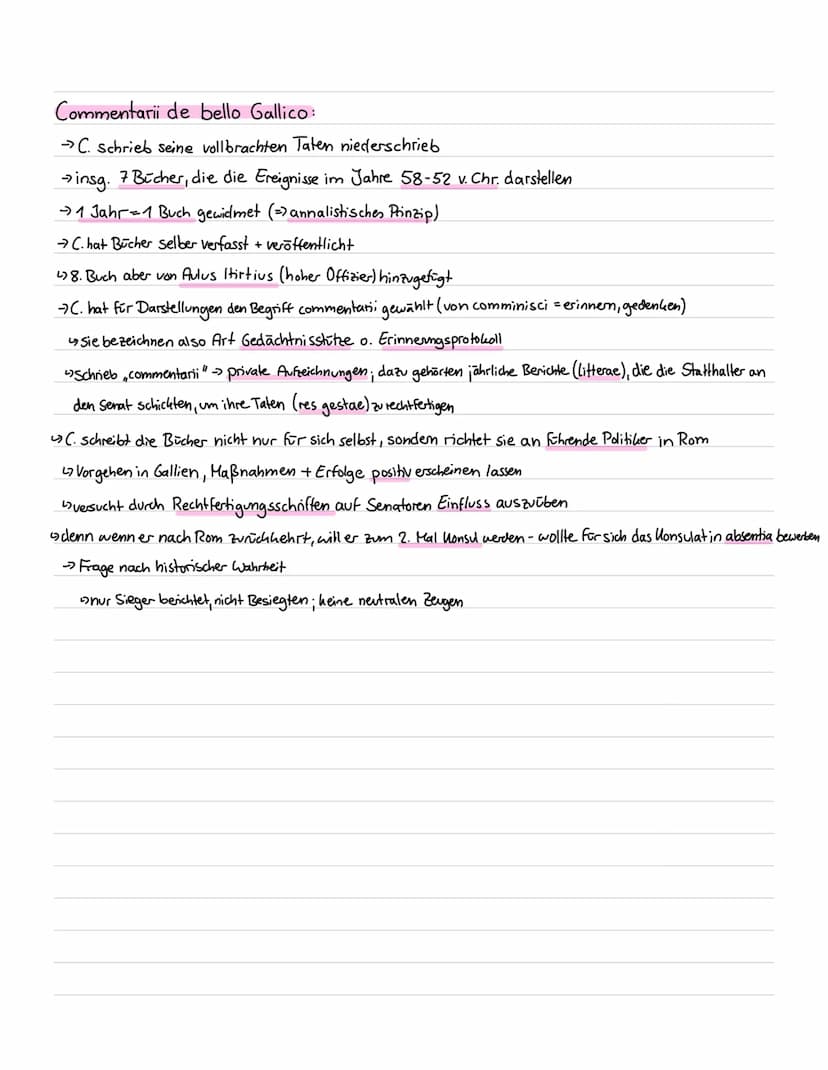 Commentarii de bello Gallico:
→ C. schrieb seine vollbrachten Taten niederschrieb
→ insg. 7 Bücher, die die Ereignisse im Jahre 58-52 v. Chr. darstellen
→ 1 Jahr = 1 Buch gewidmet (⇒ annalistisches Prinzip)
→ C. hat Bücher selber verfasst + veröffentlicht
↳ 8. Buch aber von Aulus Hirtius (hoher Offizier) hinzugefügt
→ C. hat für Darstellungen den Begriff commentarii gewählt (von comminisci = erinnern, gedenken)
↳ Sie bezeichnen also Art Gedächtnisstütze o. Erinnerungsprotokoll
↳ Schrieb „commentarii" → private Aufzeichnungen; dazu gehörten jährliche Berichte (litterae), die die Statthalter an
den Senat schickten, um ihre Taten (res gestae) zu rechtfertigen
↳ C. schreibt die Bücher nicht nur für sich selbst, sondern richtet sie an führende Politiker in Rom
↳ Vorgehen in Gallien, Maßnahmen + Erfolge positiv erscheinen lassen
↳ versucht durch Rechtfertigungsschriften auf Senatoren Einfluss auszuüben
↳ denn wenn er nach Rom zurückkehrt, will er zum 2. Mal Konsul werden - wollte für sich das Konsulat in absentia bewerben
→ Frage nach historischer Wahrheit
↳ nur Sieger berichtet, nicht Besiegten; keine neutralen Zeugen